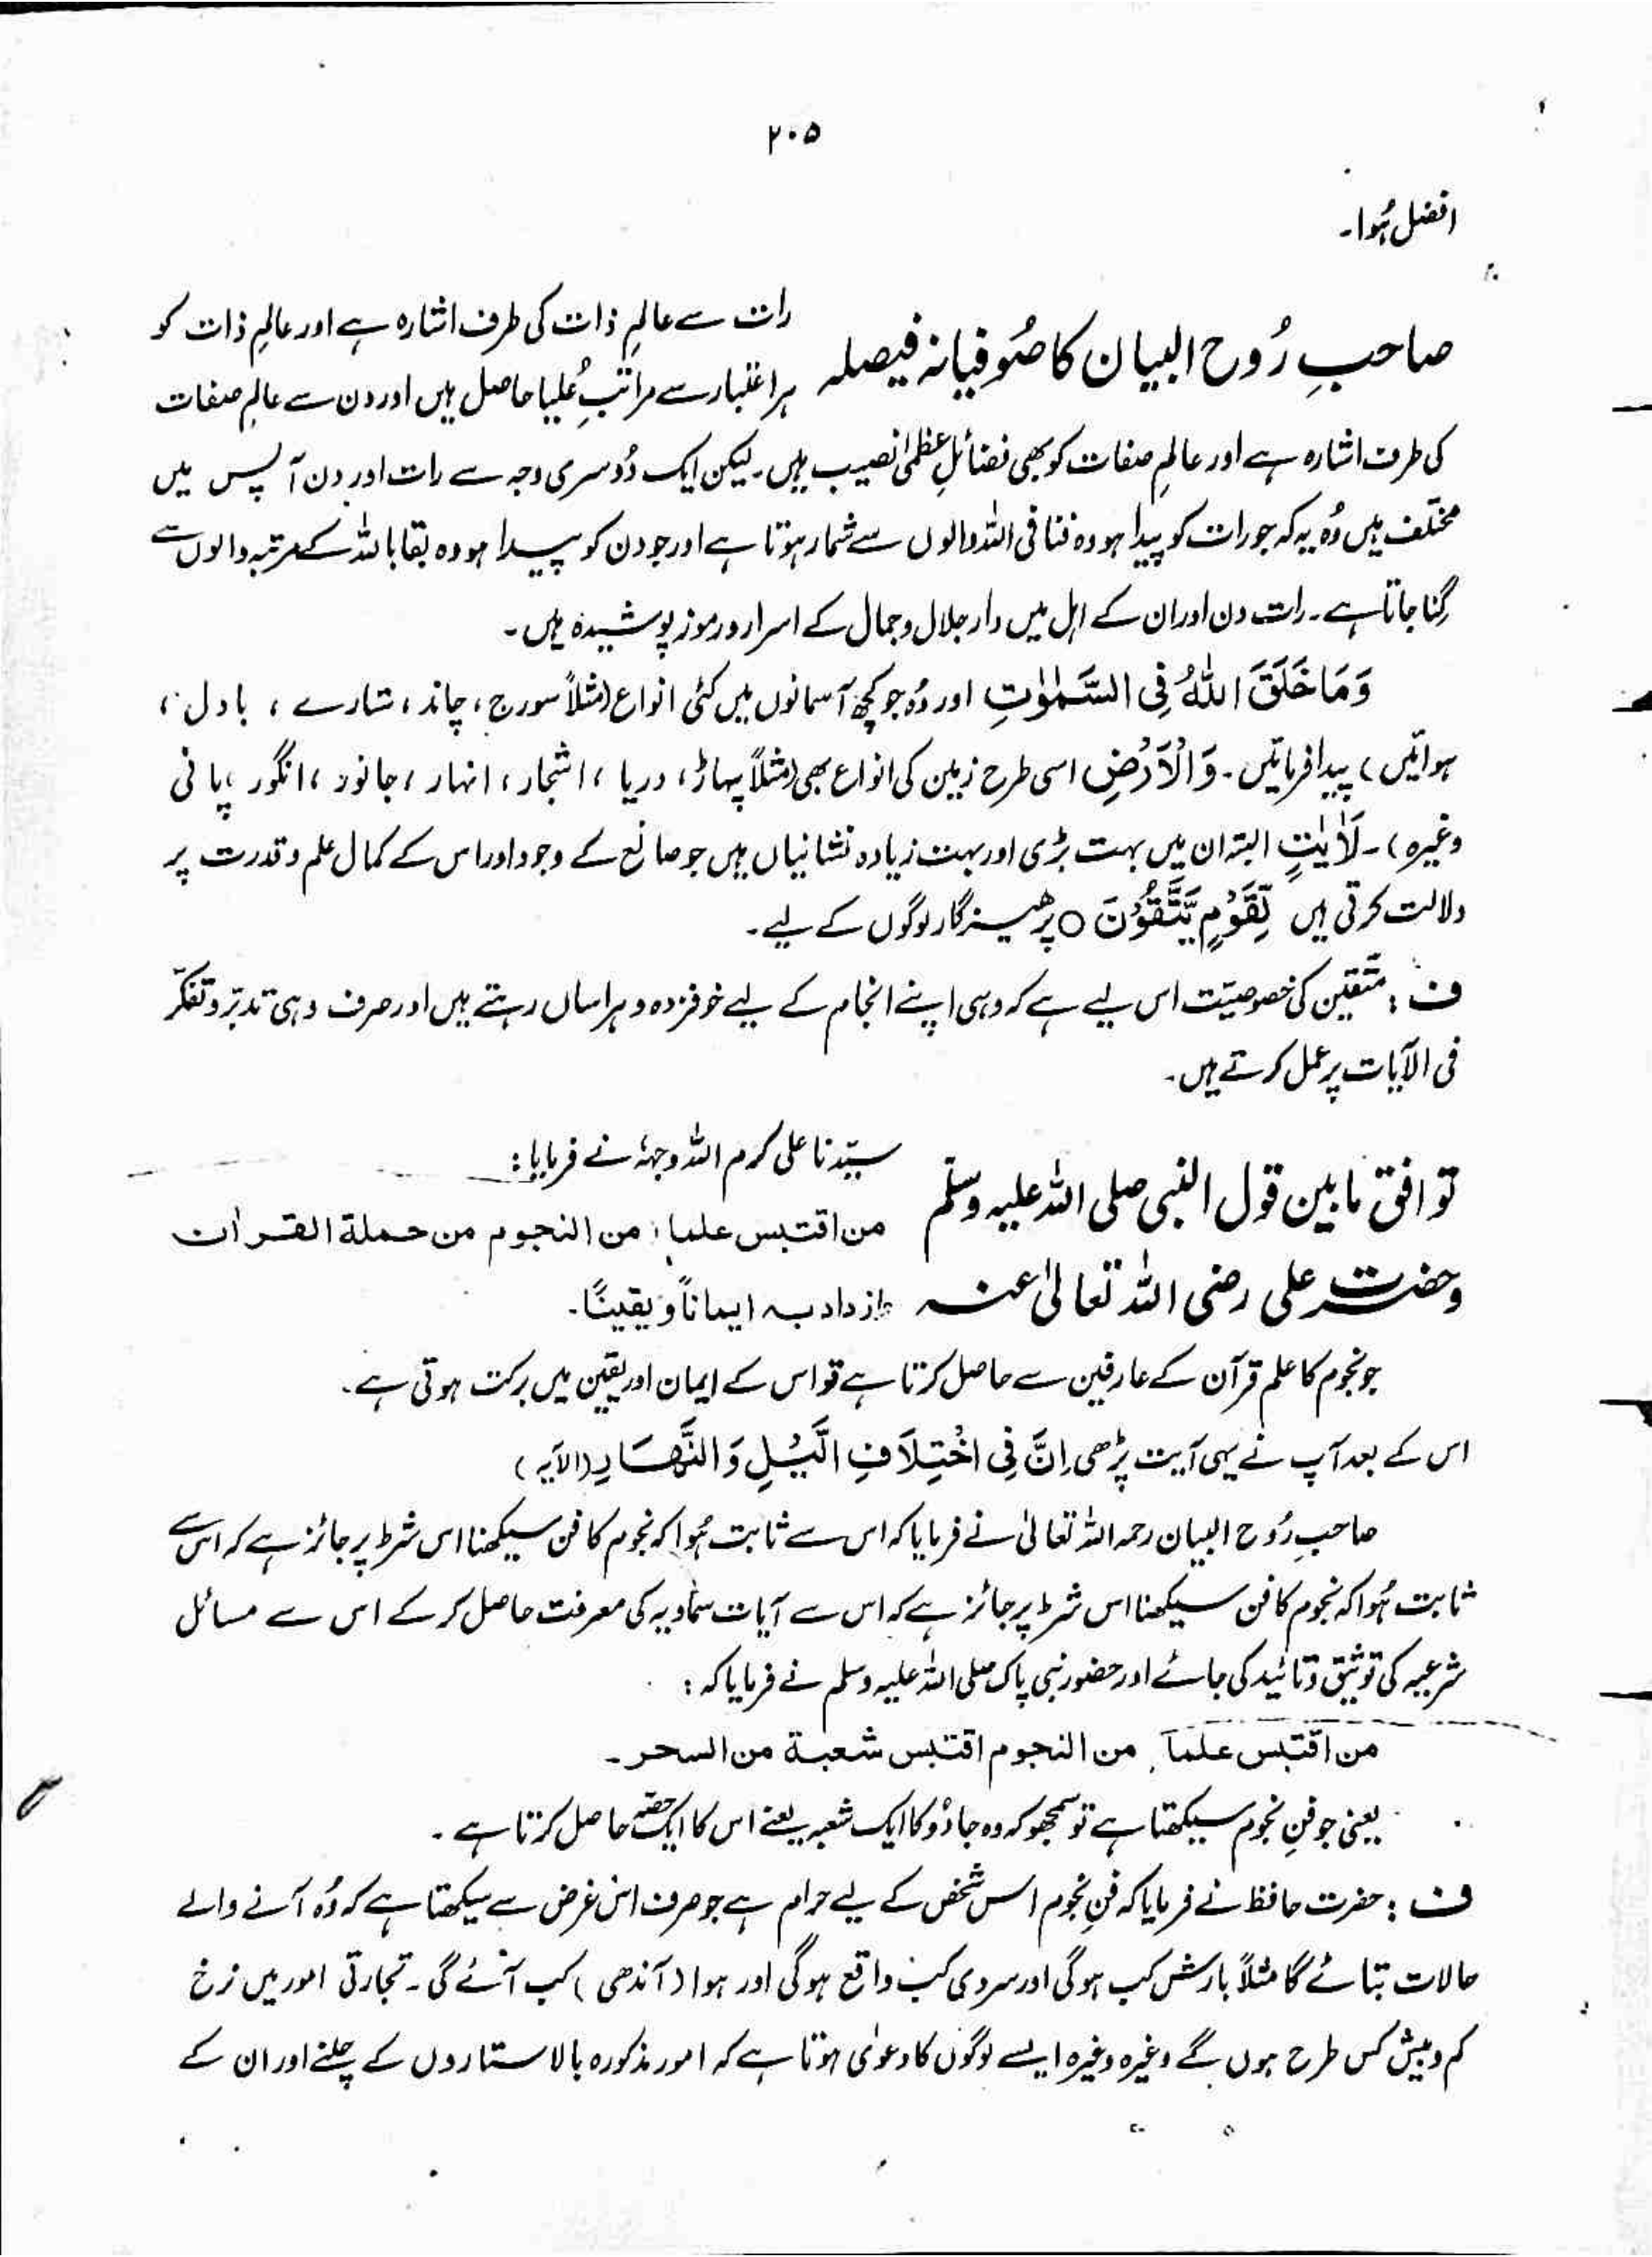 ۲۰۵
افضل ہُوا۔
صاحبِ رُوح البیان کا صُوفیانہ فیصلہ
رات سے عالمِ ذات کی طرف اشارہ ہے اور عالمِ ذات کو
ہر اعتبار سے مراتبِ عُلیا حاصل ہیں اور دن سے عالمِ صفات
کی طرف اشارہ ہے اور عالمِ صفات کو بھی فضائلِ عظمیٰ نصیب ہیں۔ لیکن ایک دُوسری وجہ سے رات اور دن آپس میں
مختلف ہیں وُہ یہ کہ جو رات کو پیدا ہو وہ فنا فی اللہ والوں سے شمار ہوتا ہے اور جو دن کو پیدا ہو وہ بقا باللہ کے مرتبہ والوں سے
گِنا جاتا ہے۔ رات دن اور ان کے اہل میں دار جلال و جمال کے اسرار و رموز پوشیدہ ہیں۔
وَمَا خَلَقَ اللّٰہُ فِی السَّمٰوٰتِ اور وُہ جو کچھ آسمانوں میں کئی انواع (مثلاً سورج، چاند، ستارے، بادل،
ہوائیں) پیدا فرمائیں۔ وَالْاَرْضِ اسی طرح زمین کی انواع بھی (مثلاً پہاڑ، دریا، اشجار، انہار، جانور، انگور، پانی
وغیرہ)۔ لَاٰیٰتٍ البتہ ان میں بہت بڑی اور بہت زیادہ نشانیاں ہیں جو صانع کے وجود اور اس کے کمال علم و قدرت پر
دلالت کرتی ہیں لِّقَوْمٍ یَّتَّقُوْنَ ○ پرھیزگار لوگوں کے لیے۔
ف : متّقین کی خصوصیّت اس لیے ہے کہ وہی اپنے انجام کے لیے خوفزدہ و ہراساں رہتے ہیں اور صرف وہی تدبّر و تفکّر
فی الآیات پر عمل کرتے ہیں۔
توافق مابین قول النبی صلی اللہ علیہ وسلّم
وحضرت علی رضی اللہ تعالیٰ عنہ
سیّدنا علی کرم اللہ وجہہٗ نے فرمایا :
من اقتبس علما من النجوم من حملة القراٰن
ازداد بہ ایمانًا و یقینًا۔
جو نجوم کا علم قرآن کے عارفین سے حاصل کرتا ہے تو اس کے ایمان اور یقین میں برکت ہوتی ہے۔
اس کے بعد آپ نے یہی آیت پڑھی اِنَّ فِی اخْتِلَافِ الَّیْلِ وَالنَّھَارِ (الآیہ)
صاحبِ رُوح البیان رحمہ اللہ تعالیٰ نے فرمایا کہ اس سے ثابت ہُوا کہ نجوم کا فن سیکھنا اس شرط پر جائز ہے کہ اس سے
ثابت ہُوا کہ نجوم کا فن سیکھنا اس شرط پر جائز ہے کہ اس سے آیات سماویہ کی معرفت حاصل کر کے اس سے مسائل
شرعیہ کی توثیق و تائید کی جائے اور حضور نبی پاک صلی اللہ علیہ وسلم نے فرمایا کہ :
من اقتبس علماً من النجوم اقتبس شعبة من السحر۔
یعنی جو فنِ نجوم سیکھتا ہے تو سمجھو کہ وہ جادُو کا ایک شعبہ یعنے اس کا ایک حصّہ حاصل کرتا ہے۔
ف : حضرت حافظ نے فرمایا کہ فنِ نجوم اس شخص کے لیے حرام ہے جو صرف اس غرض سے سیکھتا ہے کہ وُہ آنے والے
حالات بتائے گا مثلاً بارش کب ہوگی اور سردی کب واقع ہوگی اور ہوا (آندھی) کب آئے گی۔ تجارتی امور میں نرخ
کم و بیش کس طرح ہوں گے وغیرہ وغیرہ ایسے لوگوں کا دعوٰی ہوتا ہے کہ امور مذکورہ بالا ستاروں کے چلنے اور ان کے